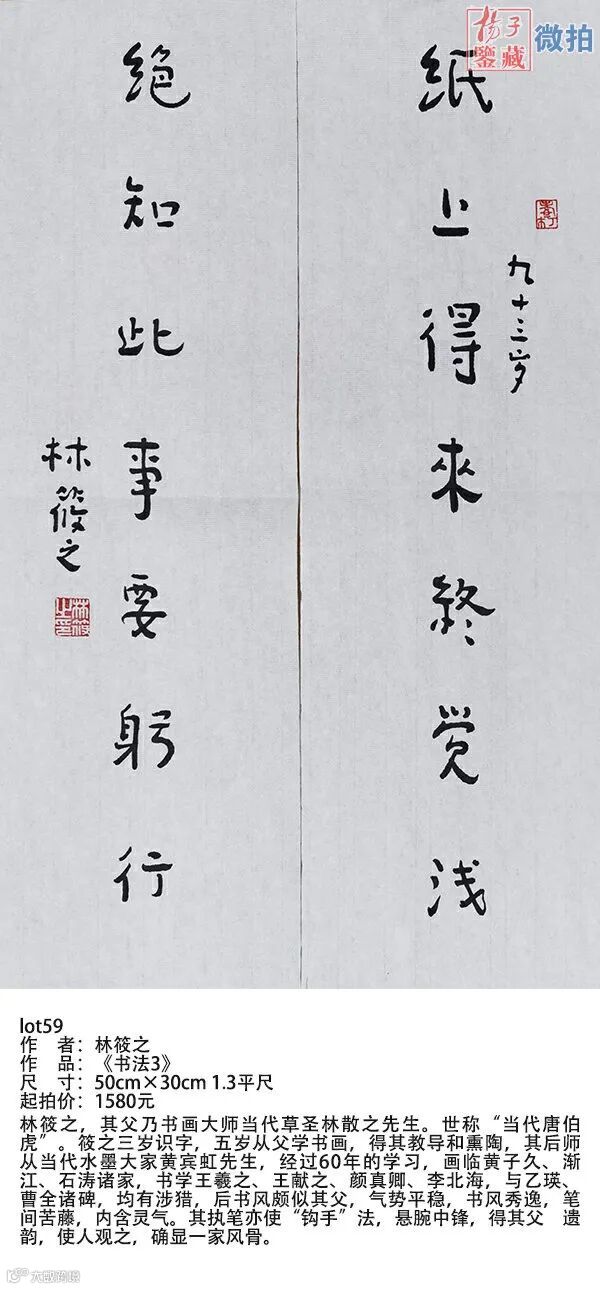 杨子
鉴藏
微拍
纸上得来终觉浅
九十三岁
绝知此事要躬行
林筱之
林筱之印
lot59
作 者：林筱之
作 品：《书法3》
尺 寸：50cm×30cm 1.3平尺
起拍价：1580元
林筱之，其父乃书画大师当代草圣林散之先生。世称“当代唐伯
虎”。筱之三岁识字，五岁从父学书画，得其教导和熏陶，其后师
从当代水墨大家黄宾虹先生，经过60年的学习，画临黄子久、渐
江、石涛诸家，书学王羲之、王献之、颜真卿、李北海，与乙瑛、
曹全诸碑，均有涉猎，后书风颇似其父，气势平稳，书风秀逸，笔
间苦藤，内含灵气。其执笔亦使“钩手”法，悬腕中锋，得其父 遗
韵，使人观之，确显一家风骨。
大威跨境